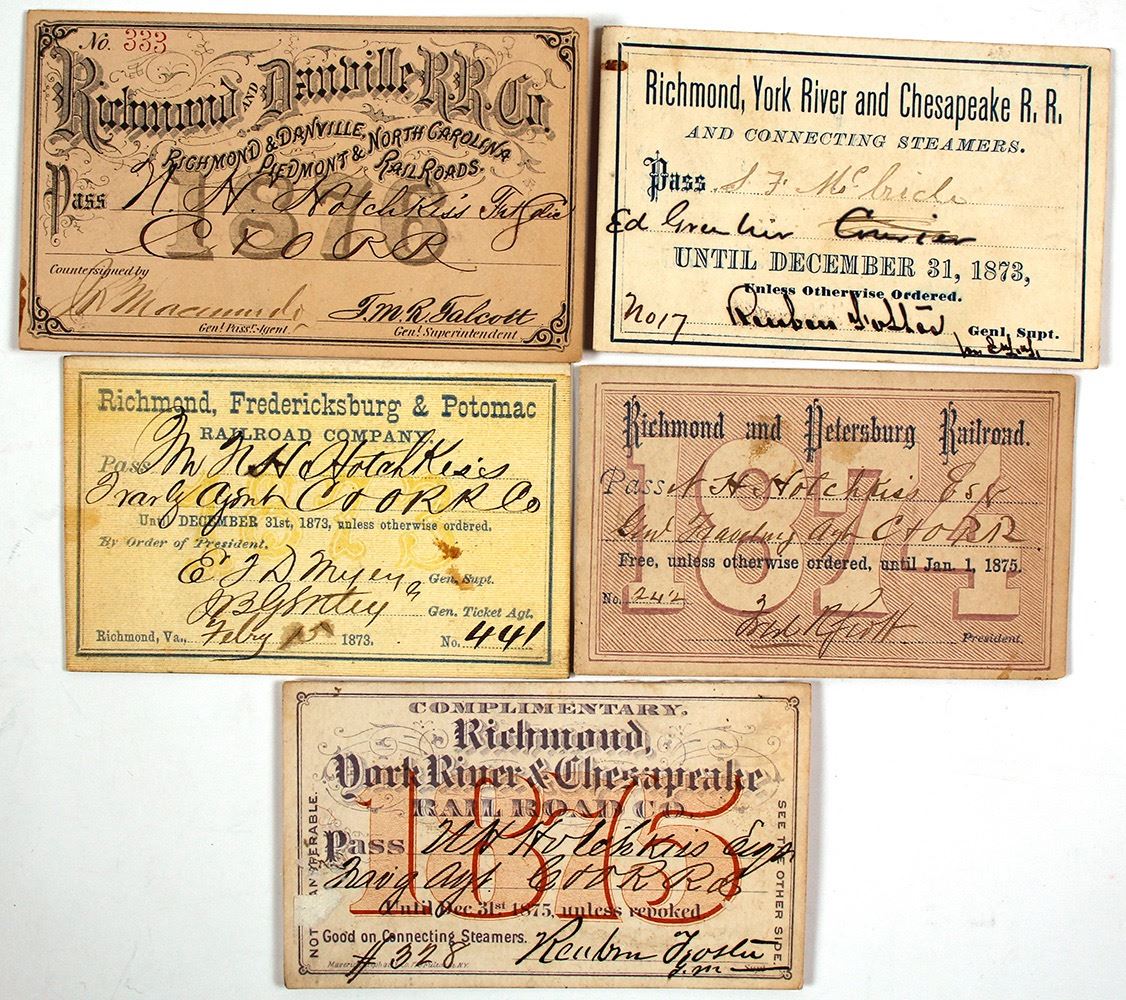 No. 333
Richmond AND Danville R.R. Co.
RICHMOND & DANVILLE,
PIEDMONT & NORTH CAROLINA
RAILROADS.
1876
Pass N. H. Hotchkiss
C & O R R
Countersigned by
Genl. Pass. Agent.
T.M.R. Talcott
Genl. Superintendent
Richmond, York River and Chesapeake R. R.
AND CONNECTING STEAMERS.
Pass S. F. McBride
Ed
UNTIL DECEMBER 31, 1873,
Unless Otherwise Ordered.
No 17 Reuben Foster Genl. Supt.
Richmond, Fredericksburg & Potomac
RAILROAD COMPANY.
Pass Mr N H Hotchkiss
Agent C & O R R Co
Until DECEMBER 31st, 1873, unless otherwise ordered.
By Order of President.
E. T. D. Myers Gen. Supt.
Gen. Ticket Agt.
Richmond, Va., Feby 1873. No. 441
Richmond and Petersburg Railroad.
1874
Pass N H Hotchkiss Esq
Genl Traveling Agt C & O R R
Free, unless otherwise ordered, until Jan. 1, 1875.
No. 242
Fred R Scott President.
COMPLIMENTARY.
Richmond,
York River & Chesapeake
RAIL ROAD CO.
1875
Pass N H Hotchkiss
Agt C & O R R Co
Until Dec. 31st 1875, unless revoked
Good on Connecting Steamers.
# 328 Reuben Foster
Supt
NOT
SEE THE OTHER SIDE.